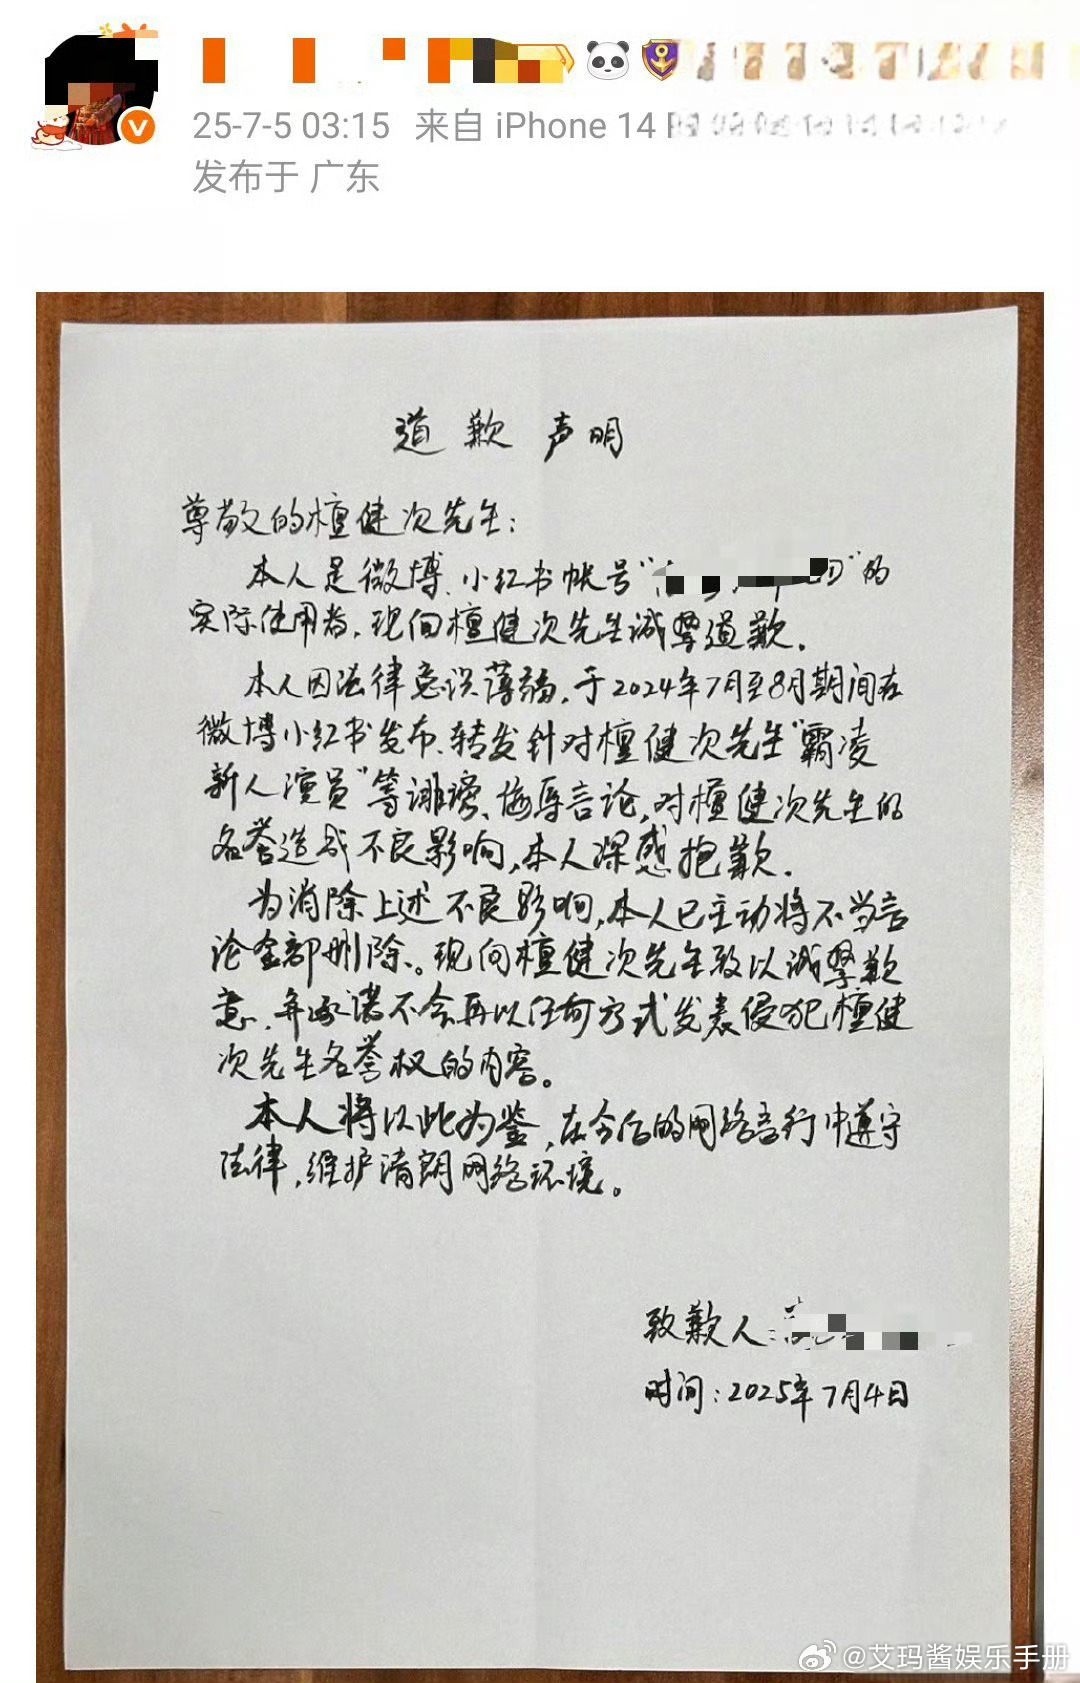 25-7-5 03:15 来自 iPhone 14
发布于 广东
道歉声明
尊敬的檀健次先生：
本人是微博、小红书帐号“”的
实际使用者，现向檀健次先生诚挚道歉。
本人因法律意识薄弱，于2024年7月至8月期间在
微博小红书发布、转发针对檀健次先生“霸凌
新人演员”等诽谤、侮辱言论，对檀健次先生的
名誉造成不良影响，本人深感抱歉。
为消除上述不良影响，本人已主动将不当言
论全部删除。现向檀健次先生致以诚挚歉
意，并承诺不会再以任何方式发表侵犯檀健
次先生名誉权的内容。
本人将以此为鉴，在今后的网络言行中遵守
法律，维护清朗网络环境。
致歉人：
时间：2025年7月4日
@艾玛酱娱乐手册